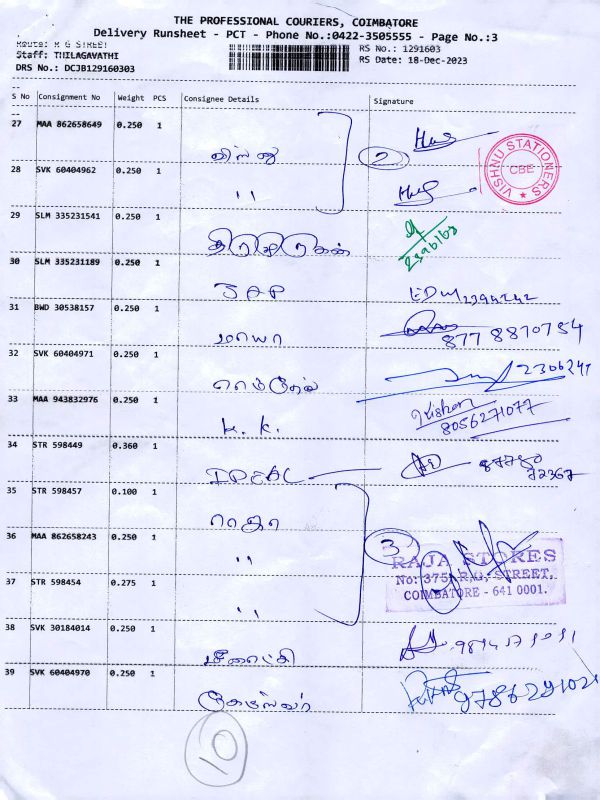 THE PROFESSIONAL COURIERS, COIMBATORE
Delivery Runsheet - PCT - Phone No.:0422-3505555 - Page No.:3
Route: R G STREET
Staff: THILAGAVATHI
DRS No.: DCJB129160303
RS No.: 1291603
RS Date: 18-Dec-2023
S No Consignment No Weight PCS Consignee Details Signature
27 MAA 862658649 0.250 1
விஸ்ணு 2
28 SVK 60404962 0.250 1
" VISHNU STATIONERS CBE
29 SLM 335231541 0.250 1
30 SLM 335231189 0.250 1
JAP
31 BWD 30538157 0.250 1
மாயா 877 8870754
32 SVK 60404971 0.250 1
33 MAA 943832976 0.250 1
K. K. 8056271077
34 STR 598449 0.360 1
IDEAL 87780 72367
35 STR 598457 0.100 1
ராஜா
36 MAA 862658243 0.250 1
" 3
RAJA STORES
37 STR 598454 0.275 1
No: 375, R.G. STREET,
COIMBATORE - 641 0001.
"
38 SVK 30184014 0.250 1
மீனாட்சி
39 SVK 60404970 0.250 1
10